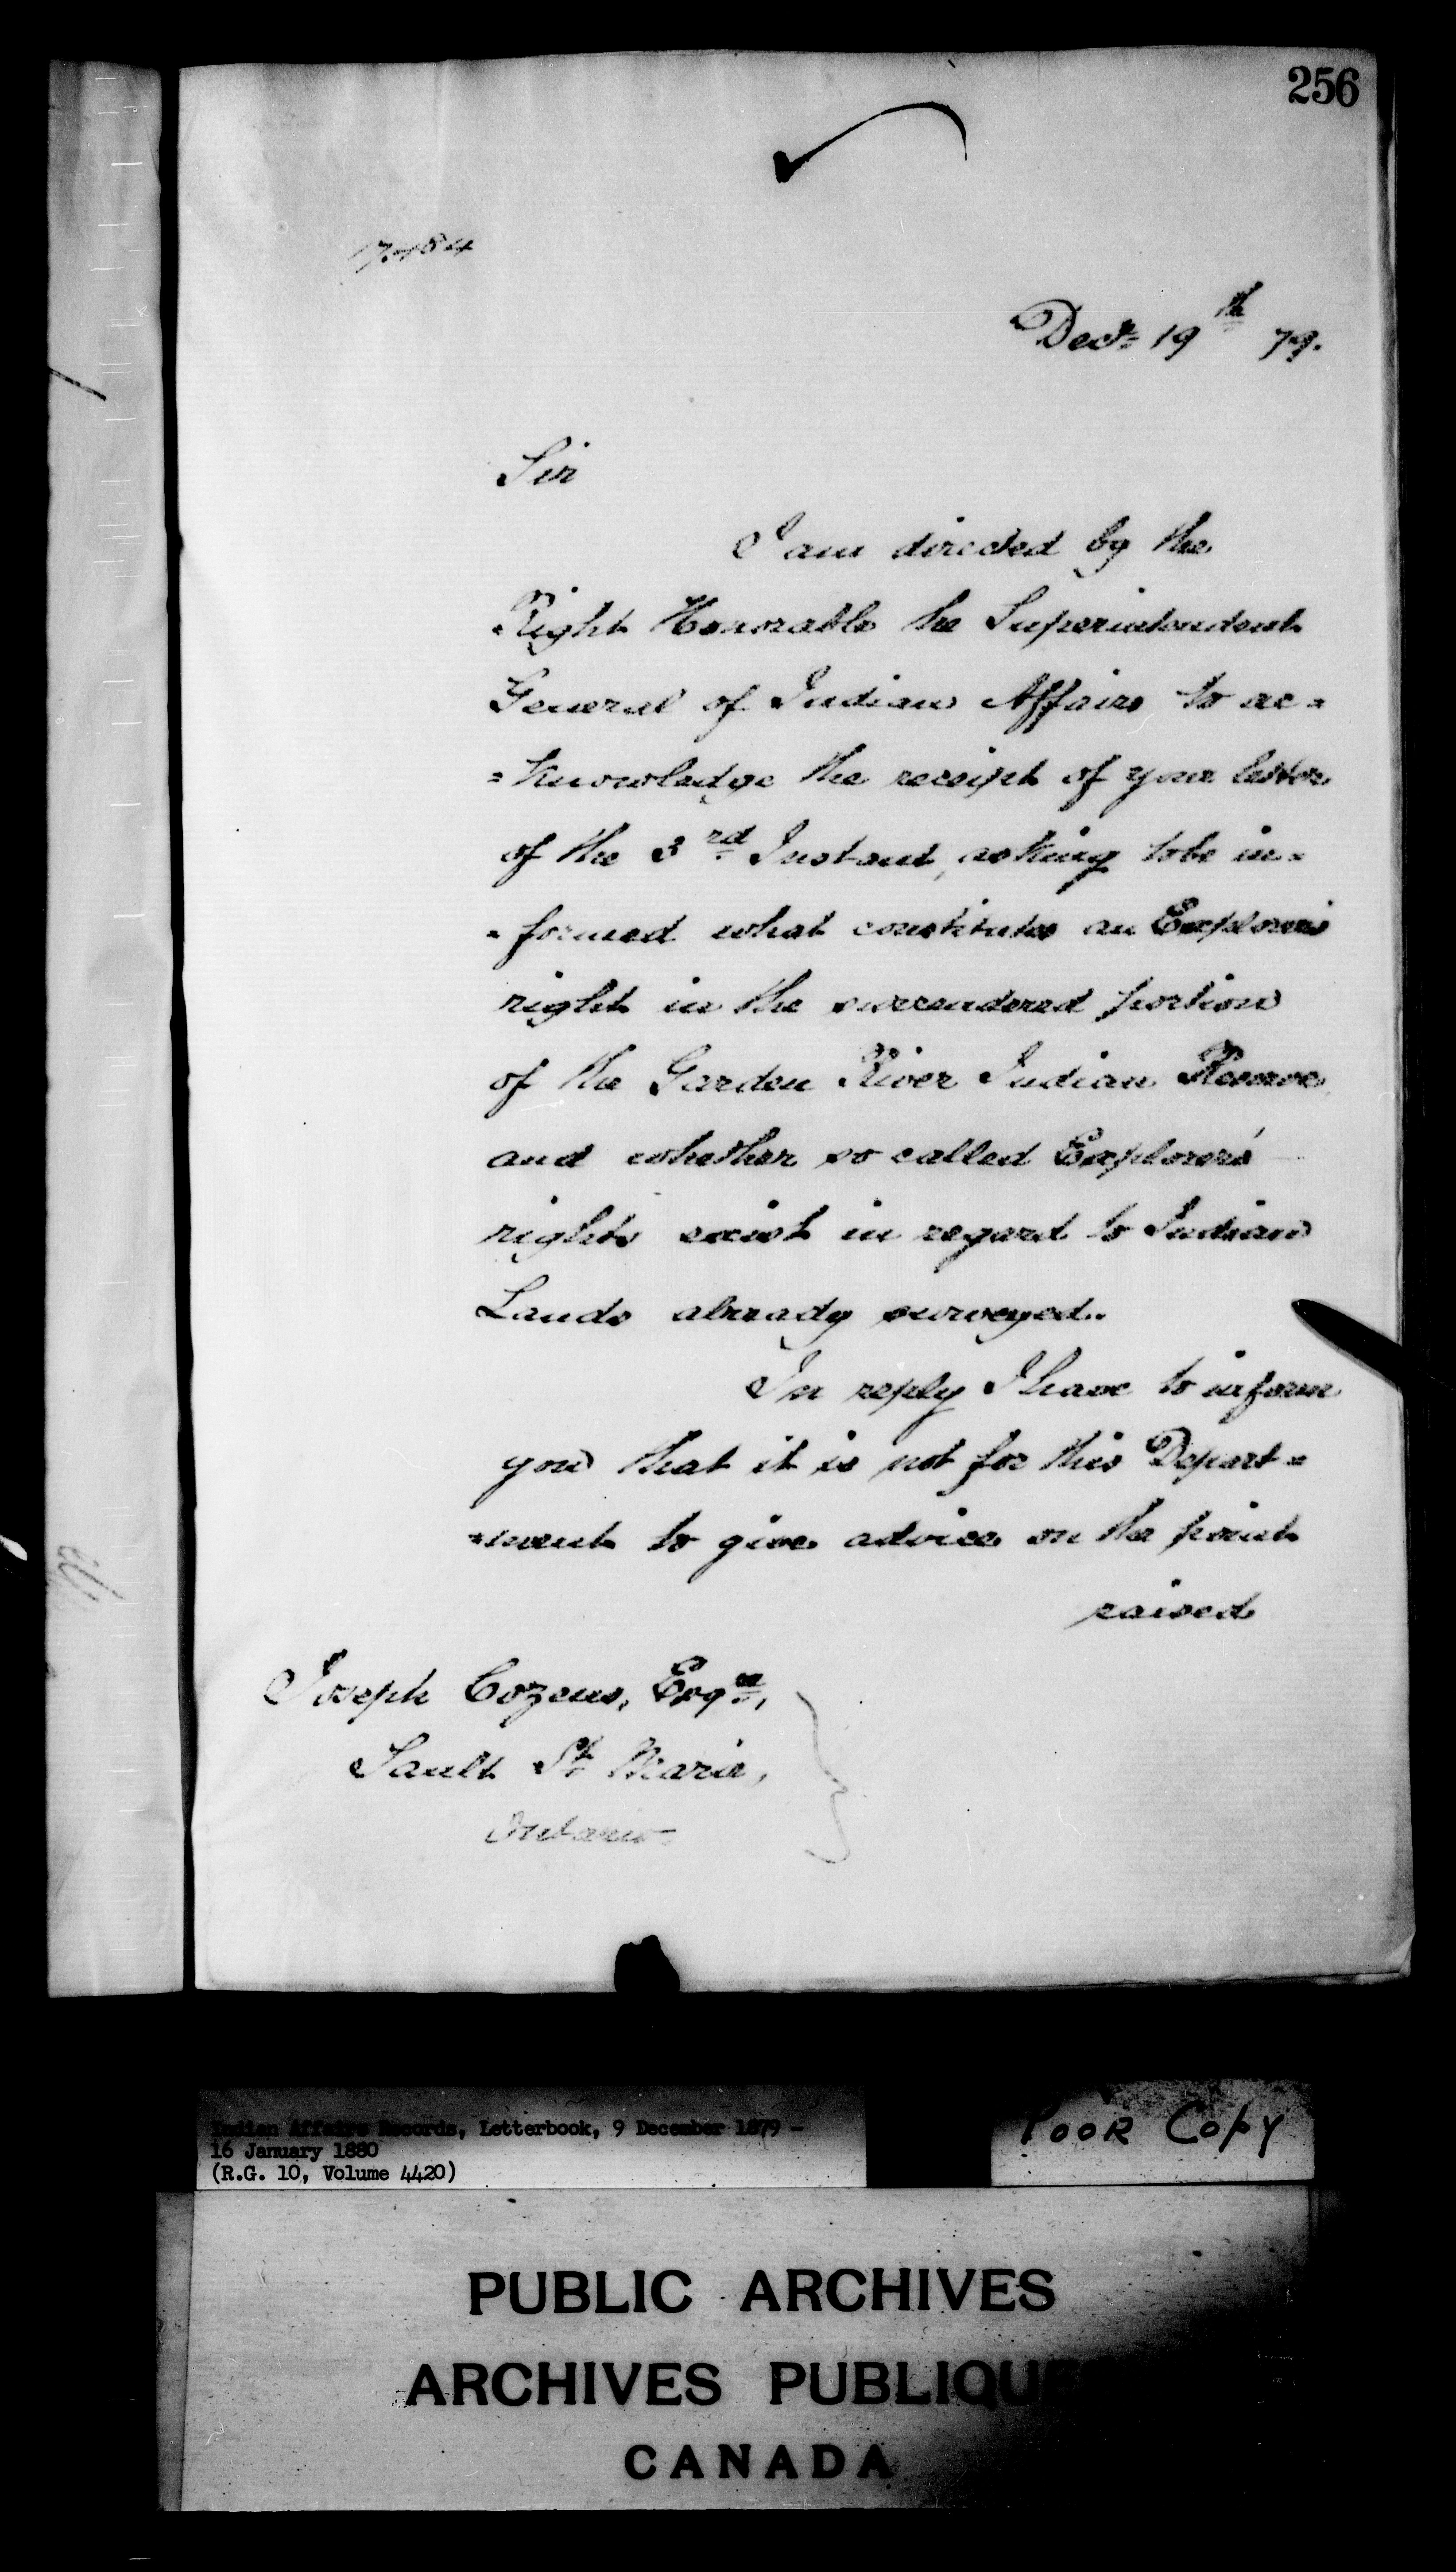 256
Decr 19th 79.
Sir
I am directed by the
Right Honorable the Superintendent
General of Indian Affairs to ac=
=knowledge the receipt of your letter
of the 3rd Instant, asking to be in=
=formed what constitutes an Explorer's
right in the surrendered portion
of the Garden River Indian Reserve
and whether so called Explorers'
rights exist in regard to Indian
Lands already surveyed.
In reply I have to inform
you that it is not for this Depart=
=ment to give advice on the point
raised
Joseph Cozens, Esqre,
Sault St Marie,
Ontario
Indian Affairs Records, Letterbook, 9 December 1879 -
16 January 1880
(R.G. 10, Volume 4420)
POOR COPY
PUBLIC ARCHIVES
ARCHIVES PUBLIQUE
CANADA